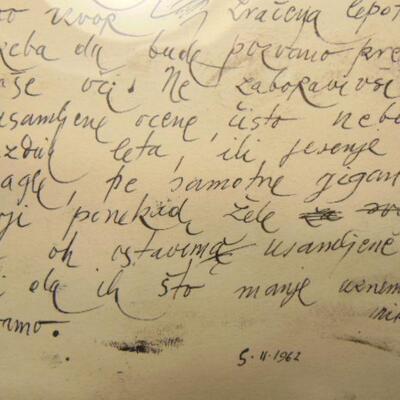 izvor zračenja lepot
treba da bude pozvano pre
naše oči. Ne zaboravi
usamljene ocene, čisto nebo
leta, ili jesenje
magle, pe samotne gigan
koji ponekad žele
oh ostavimo usamljene
i da ih što manje uznem
5.II.1962